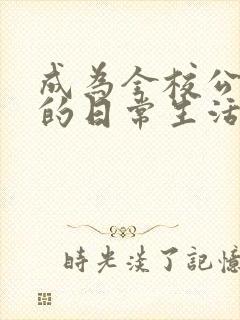 成為全校公
的日常生活
時光淡了記憶